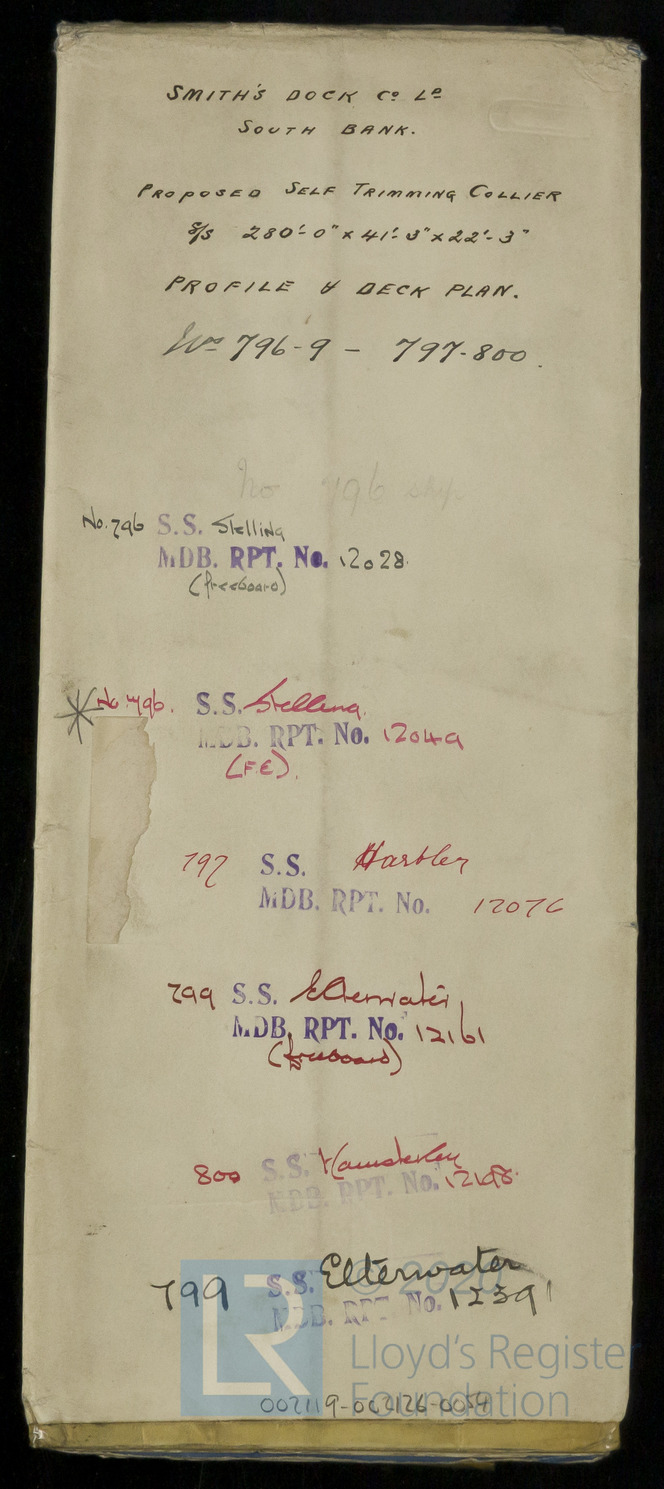 SMITH'S DOCK Co Ld
SOUTH BANK.
PROPOSED SELF TRIMMING COLLIER
S/S 280'-0" x 41'-3" x 22'-3"
PROFILE & DECK PLAN.
Nos 796-9 - 797-800.
No 796 ship
No. 796 S.S. Stelling
MDB. RPT. No. 12028
(freeboard)
No 796. S.S. Stelling
MDB. RPT. No. 12049
(F.E).
797 S.S.
MDB. RPT. No. 12076
799 S.S. Elterwater
MDB. RPT. No. 12161
(freeboard)
800 S.S. Hamsterley
MDB. RPT. No.
799 S.S. Elterwater
MDB. RPT. No. 12391
LR © 2020
Lloyd's Register
Foundation
002119-002126-0054